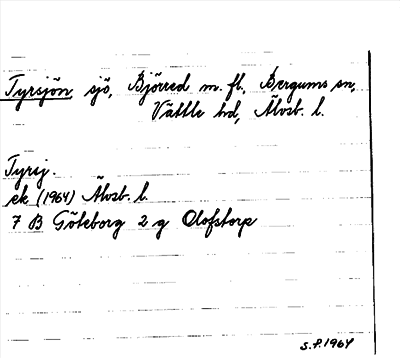 Tyrsjön sjö, Björred m. fl., Bergums sn,
Vättle hd, Älvsb. l.
Tyrsj.
ek (1964) Älvsb. l.
7 B Göteborg 2 g Olofstorp
S.F. 1964